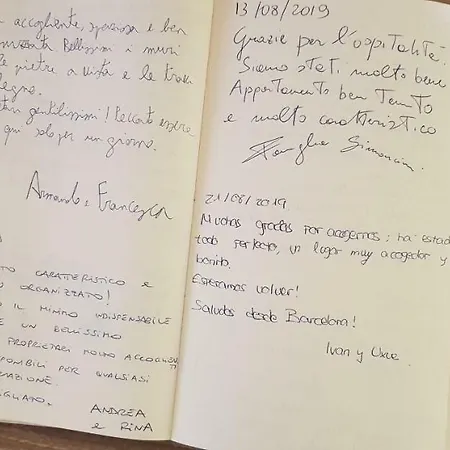 accogliente, spaziosa e ben
Bellissimi i muri
pietre a vista e le travi
legno.
gentilissimi! Peccato essere
qui solo per un giorno.
Armando e Francesca
CARATTERISTICO e
ORGANIZZATO!
IL MINIMO INDISPENSABILE
E UN BELLISSIMO
PROPRIETARI MOLTO ACCOGLIENTI
PER QUALSIASI
ANDREA
e RINA
13/08/2019
Grazie per l'ospitalità.
Siamo stati molto bene
Appartamento ben tenuto
e molto caratteristico
Famiglia
21/08/2019
Muchas gracias por acogernos; ha estado
todo perfecto, un lugar muy acogedor y
bonito.
Esperamos volver!
Saludos desde Barcelona!
Ivan y